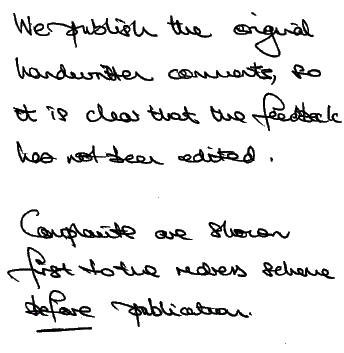 We publish the original
handwritten comments, so
it is clear that the feedback
has not been edited.
Complaints are shown
first to the redress scheme
before publication.